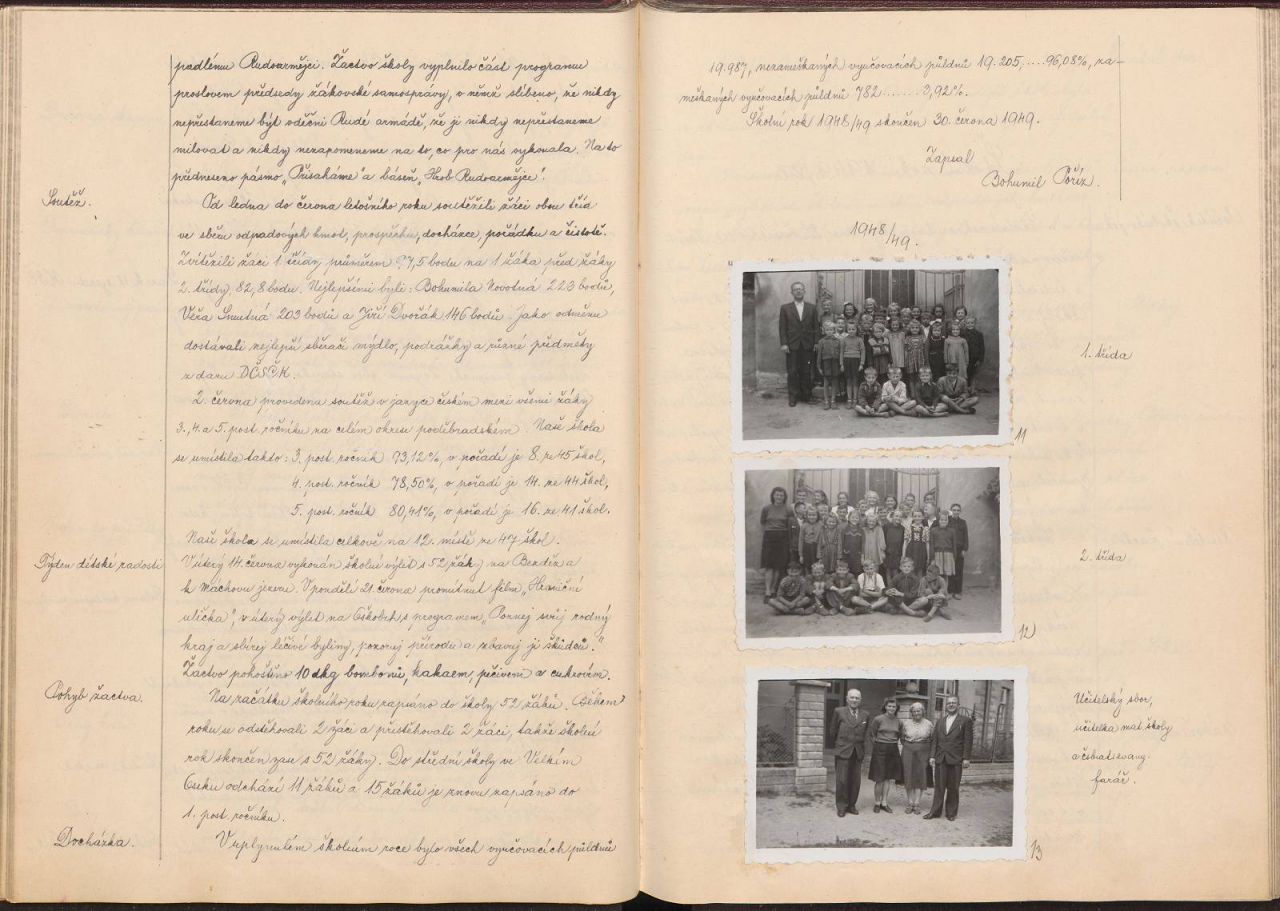 padlému Rudoarmějci. Žactvo školy vyplnilo část programu
proslovem předsedy žákovské samosprávy, v němž slíbeno, že nikdy
nepřestaneme být vděčni Rudé armádě, že ji nikdy nepřestaneme
milovat a nikdy nezapomeneme na to, co pro nás vykonala. Na to
předneseno pásmo „Přísaháme“ a báseň „Hrob Rudoarmějce“.
Soutěž.
Od ledna do června letošního roku soutěžili žáci obou tříd
ve sběru odpadových hmot, prospěchu, docházce, pořádku a čistotě.
Zvítězili žáci 1. třídy průměrem 97,5 bodu na 1 žáka před žáky
2. třídy, 82,8 bodu. Nejlepšími byli: Bohumila Novotná 223 bodů,
Věra Smutná 203 bodů a Jiří Dvořák 146 bodů. Jako odměnu
dostávali nejlepší sběrači mýdlo, podrážky a různé předměty
z daru DČSČK.
2. června provedena soutěž v jazyce českém mezi všemi žáky
3., 4. a 5. post. ročníku na celém okrese poděbradském. Naše škola
se umístila takto: 3. post. ročník 93,12%, v pořadí je 8. ze 45 škol,
4. post. ročník 78,50%, v pořadí je 14. ze 44 škol,
5. post. ročník 80,41%, v pořadí je 16. ze 41 škol.
Naše škola se umístila celkově na 12. místě ze 47 škol.
Týden dětské radosti
V úterý 14. června vykonán školní výlet s 52 žáky na Bezděz a
k Máchovu jezeru. V pondělí 21. června promítnut film „Hraniční
ulička“, v úterý výlet na Oškobrh s programem „Poznej svůj rodný
kraj a sbírej léčivé byliny, pozoruj přírodu a zbavuj ji škůdců.“
Žactvo pohoštěno 10 dkg bombonů, kakaem, pečivem a cukrovím.
Pohyb žactva.
Na začátku školního roku zapsáno do školy 52 žáků. Během
roku se odstěhovali 2 žáci a přistěhovali 2 žáci, takže školní
rok skončen zase s 52 žáky. Do střední školy ve Velkém
Oseku odchází 11 žáků a 15 žáků je znovu zapsáno do
1. post. ročníku.
Docházka.
V uplynulém školním roce bylo všech vyučovacích půldnů
19.987, nezameškaných vyučovacích půldnů 19.205.....96,08%, za-
meškaných vyučovacích půldnů 782.......3,92%.
Školní rok 1948/49 skončen 30. června 1949.
Zapsal
Bohumil Poříz.
1948/49.
1. třída
11
2. třída
12)
Učitelský sbor,
učitelka mat. školy
a českobratr. evang.
farář.
13